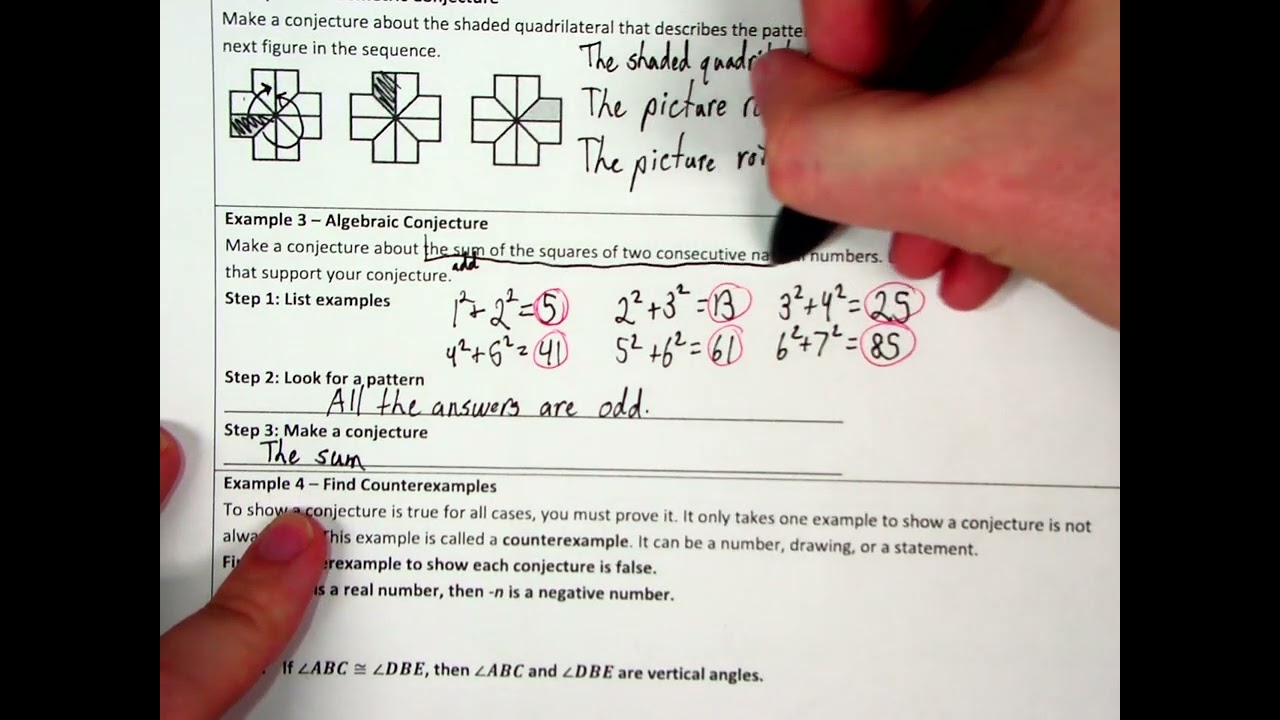 Make a conjecture about the shaded quadrilateral that describes the
next figure in the sequence.
The shaded
The picture
The picture
Example 3 – Algebraic Conjecture
Make a conjecture about the sum of the squares of two consecutive numbers.
add
that support your conjecture.
Step 1: List examples
1² + 2² = 5 2² + 3² = 13 3² + 4² = 25
4² + 5² = 41 5² + 6² = 61 6² + 7² = 85
Step 2: Look for a pattern
All the answers are odd.
Step 3: Make a conjecture
The sum
Example 4 – Find Counterexamples
To show a conjecture is true for all cases, you must prove it. It only takes one example to show a conjecture is not
This example is called a counterexample. It can be a number, drawing, or a statement.
to show each conjecture is false.
is a real number, then -n is a negative number.
If ∠ABC ≅ ∠DBE, then ∠ABC and ∠DBE are vertical angles.